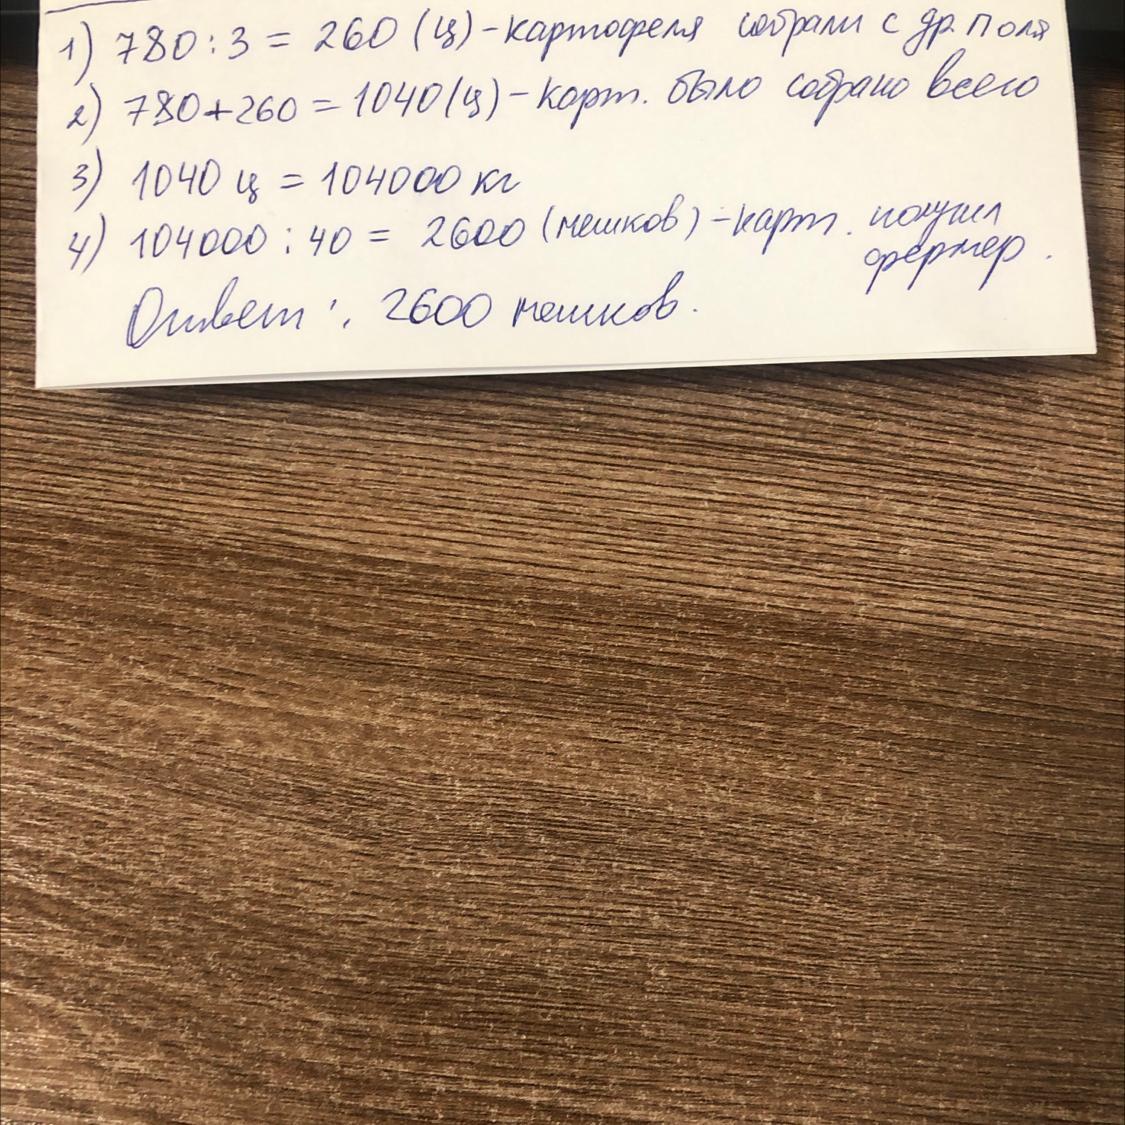 1) 780 : 3 = 260 (ц) - картофеля собрали с др. поля
2) 780+260 = 1040 (ц) - карт. было собрано всего
3) 1040 ц = 104000 кг
4) 104000 : 40 = 2600 (мешков) - карт. получил
фермер.
Ответ: 2600 мешков.